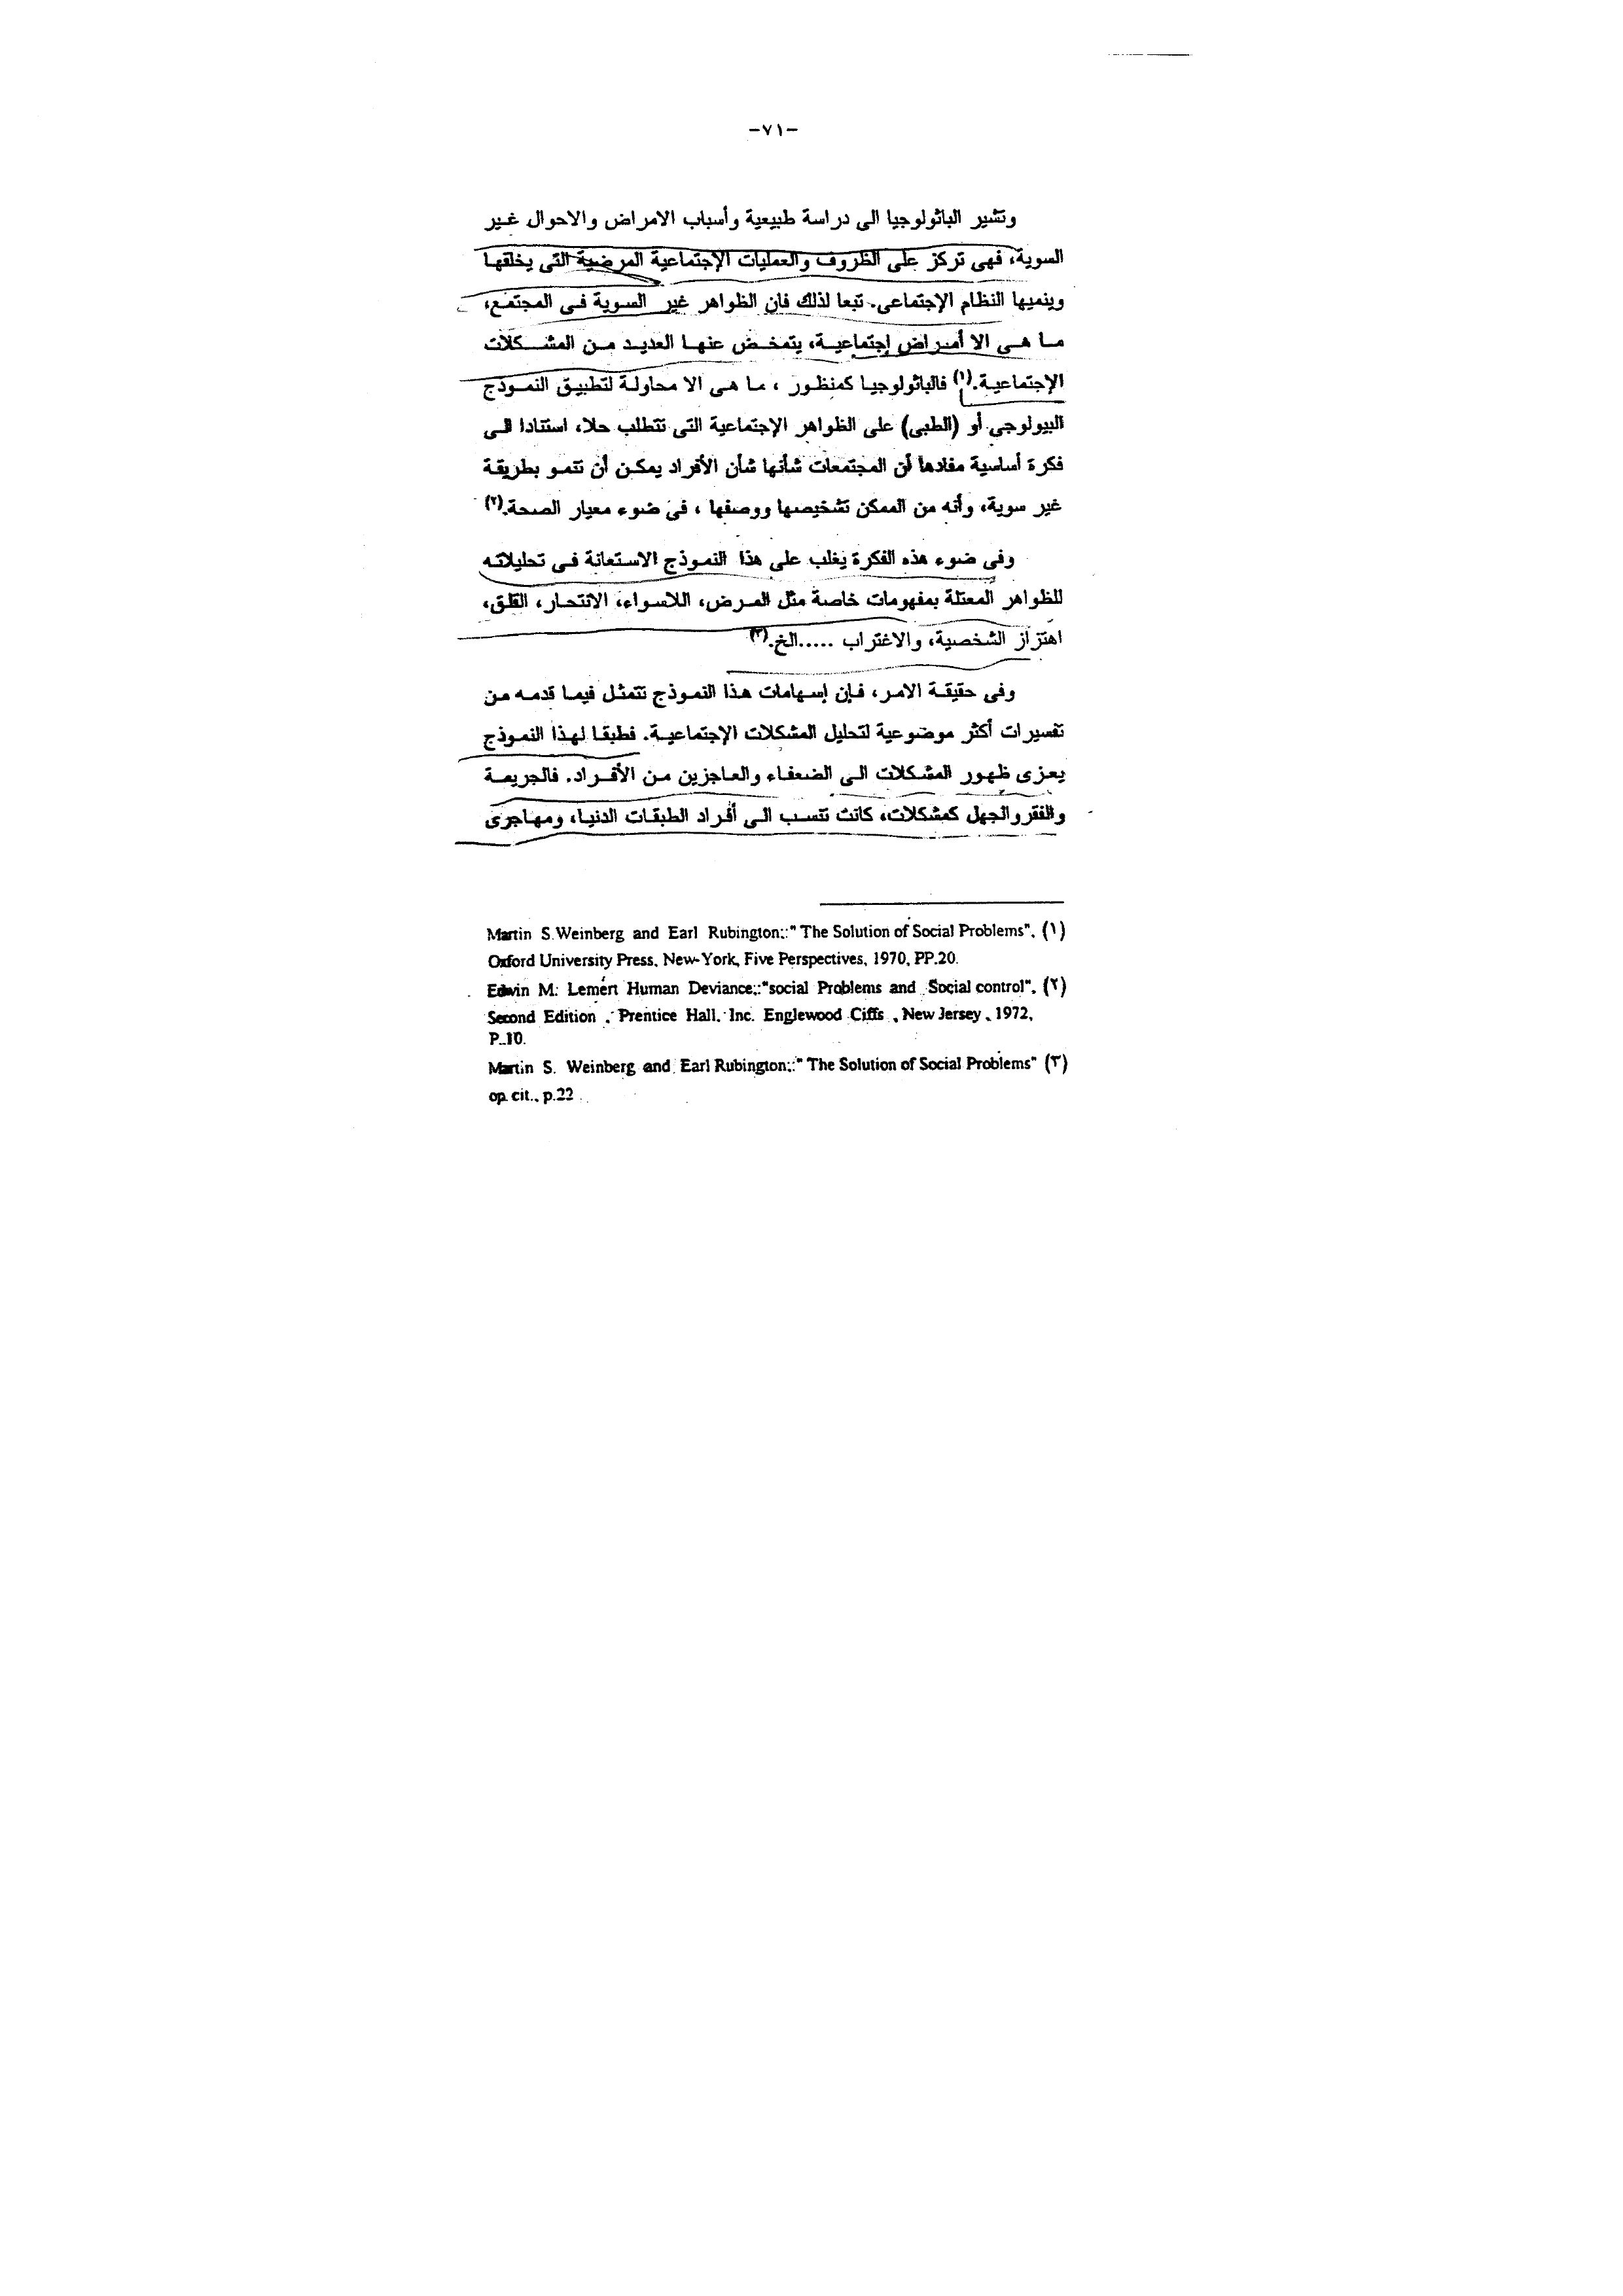 -٧١-
وتشير الباثولوجيا الى دراسة طبيعية وأسباب الامراض والاحوال غير
السوية، فهى تركز على الظروف والعمليات الإجتماعية المرضية التى يخلقها
وينميها النظام الإجتماعى. تبعا لذلك فان الظواهر غير السوية فى المجتمع،
ما هى الا أمراض إجتماعية، يتمخض عنها العديد من المشكلات
الإجتماعية.(١) فالباثولوجيا كمنظور ، ما هى الا محاولة لتطبيق النموذج
البيولوجى أو (الطبى) على الظواهر الإجتماعية التى تتطلب حلا، استنادا الى
فكرة أساسية مفادها أن المجتمعات شأنها شأن الأفراد يمكن أن تنمو بطريقة
غير سوية، وأنه من الممكن تشخيصها ووصفها ، فى ضوء معيار الصحة.(٢)
وفى ضوء هذه الفكرة يغلب على هذا النموذج الاستعانة فى تحليلاته
للظواهر المعتلة بمفهومات خاصة مثل المرض، اللاسواء، الانتحار، القلق،
اهتزاز الشخصية، والاغتراب .....الخ.(٣)
وفى حقيقة الامر، فإن إسهامات هذا النموذج تتمثل فيما قدمه من
تفسيرات أكثر موضوعية لتحليل المشكلات الإجتماعية. فطبقا لهذا النموذج
يعزى ظهور المشكلات الى الضعفاء والعاجزين من الأفراد. فالجريمة
والفقر والجهل كمشكلات، كانت تنسب الى أفراد الطبقات الدنيا، ومهاجرى
Martin S.Weinberg and Earl Rubington;:" The Solution of Social Problems", (١)
Oxford University Press, New-York, Five Perspectives, 1970, PP.20.
Edwin M. Lemert Human Deviance;:"social Problems and Social control", (٢)
Second Edition , Prentice Hall, Inc. Englewood Ciffs , New Jersey , 1972,
P..10.
Martin S. Weinberg and Earl Rubington;:" The Solution of Social Problems" (٣)
op. cit., p.22